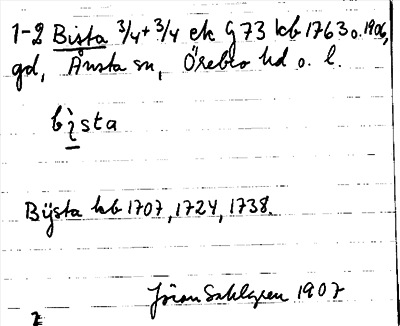 1-2 Bista 3/4+3/4 ek G 73 kb 1763 o. 1906,
gd, Ånsta sn, Örebro hd o. l.
bìsta
Bÿsta kb 1707, 1724, 1738.
Jöran Sahlgren 1907